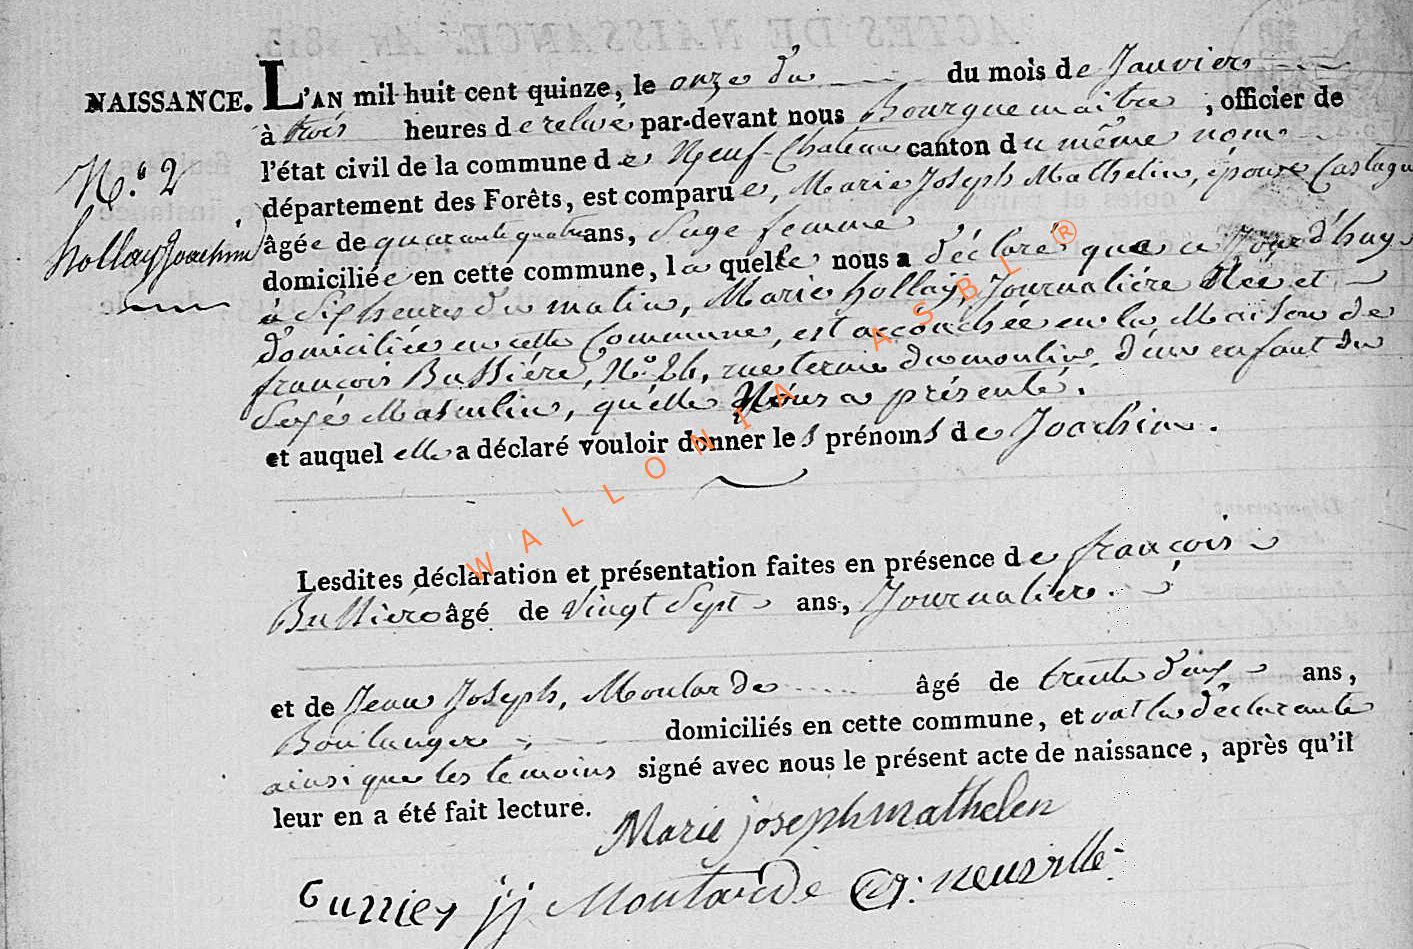 NAISSANCE. L'AN mil huit cent quinze, le onze du du mois de Janvier
à trois heures de relevé par-devant nous Bourguemaitre, officier de
l'état civil de la commune de Neuf-Chateau canton du même nom
N.° 2
département des Forêts, est comparue, Marie Joseph Mathelin, épouse Castagn
hollay Joachim
âgée de quarante quatre ans, Sage femme
domiciliée en cette commune, la quelle nous a déclaré que ce jour d'huy
à Six heures du matin, Marie hollay, Journalière Née et
domiciliée en cette Commune, est accouchée en la Maison de
françois Bussière, N.° 26, rue du moulin, d'un enfant du
Sexe Masculin, qu'elle Nous a présenté.
et auquel elle a déclaré vouloir donner les prénoms de Joachim.
WALLONIA ASBL ®
Lesdites déclaration et présentation faites en présence de françois
Bussière âgé de vingt Sept ans, Journalier.
et de Jean Joseph, Moutarde âgé de trente deux ans,
Boulanger domiciliés en cette commune, et ont la déclarante
ainsi que les temoins signé avec nous le présent acte de naissance, après qu'il
leur en a été fait lecture.
Marie joseph mathelen
jj Moutarde neuville